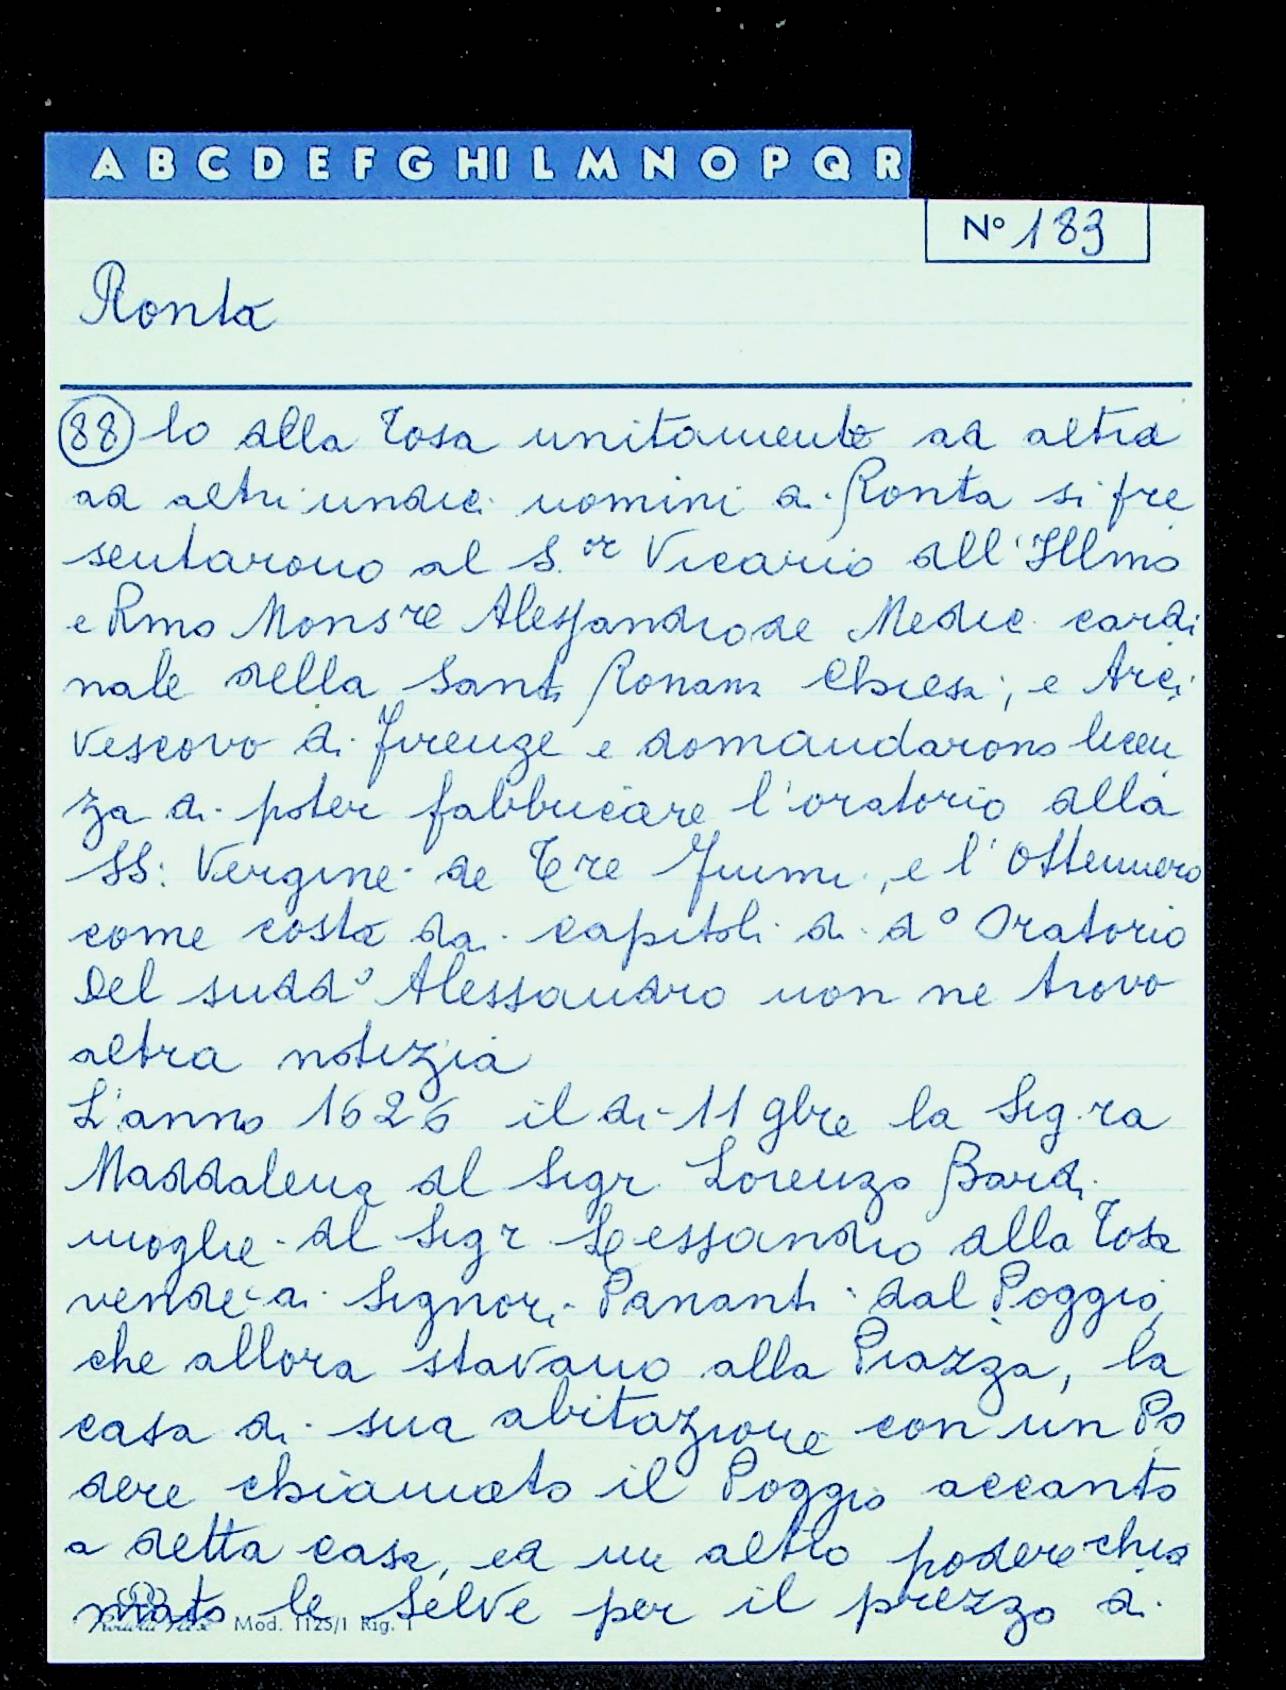 A B C D E F G H I L M N O P Q R
Nº 183
Ronta
88 lo della Tosa unitamente ad altra
ad altri undici uomini di Ronta si pre
sentarono al S.or Vicario dell'Illmo
e Rmo Monsre Alessandro de Medici cardi
nale della Santa Romana Chiesa, e Arci
vescovo di Firenze e domandarono licen
za di poter fabbricare l'oratorio alla
SS: Vergine de Tre Fiumi, e l'ottennero
come costa dai capitoli di dº Oratorio
Del suddº Alessandro non ne trovo
altra notizia
L'anno 1626 il di 11 9bre la Sig.ra
Maddalena del Sigr. Lorenzo Bardi
moglie del Sigr Alessandro della Tosa
vende ai Signori Pananti dal Poggio,
che allora stavano alla Piazza, la
casa di sua abitazione con un Po
dere chiamato il Poggio accanto
a detta casa, ed un altro podere chia
mato le Selve per il prezzo di
Mod. 1125/1 Rig. 1